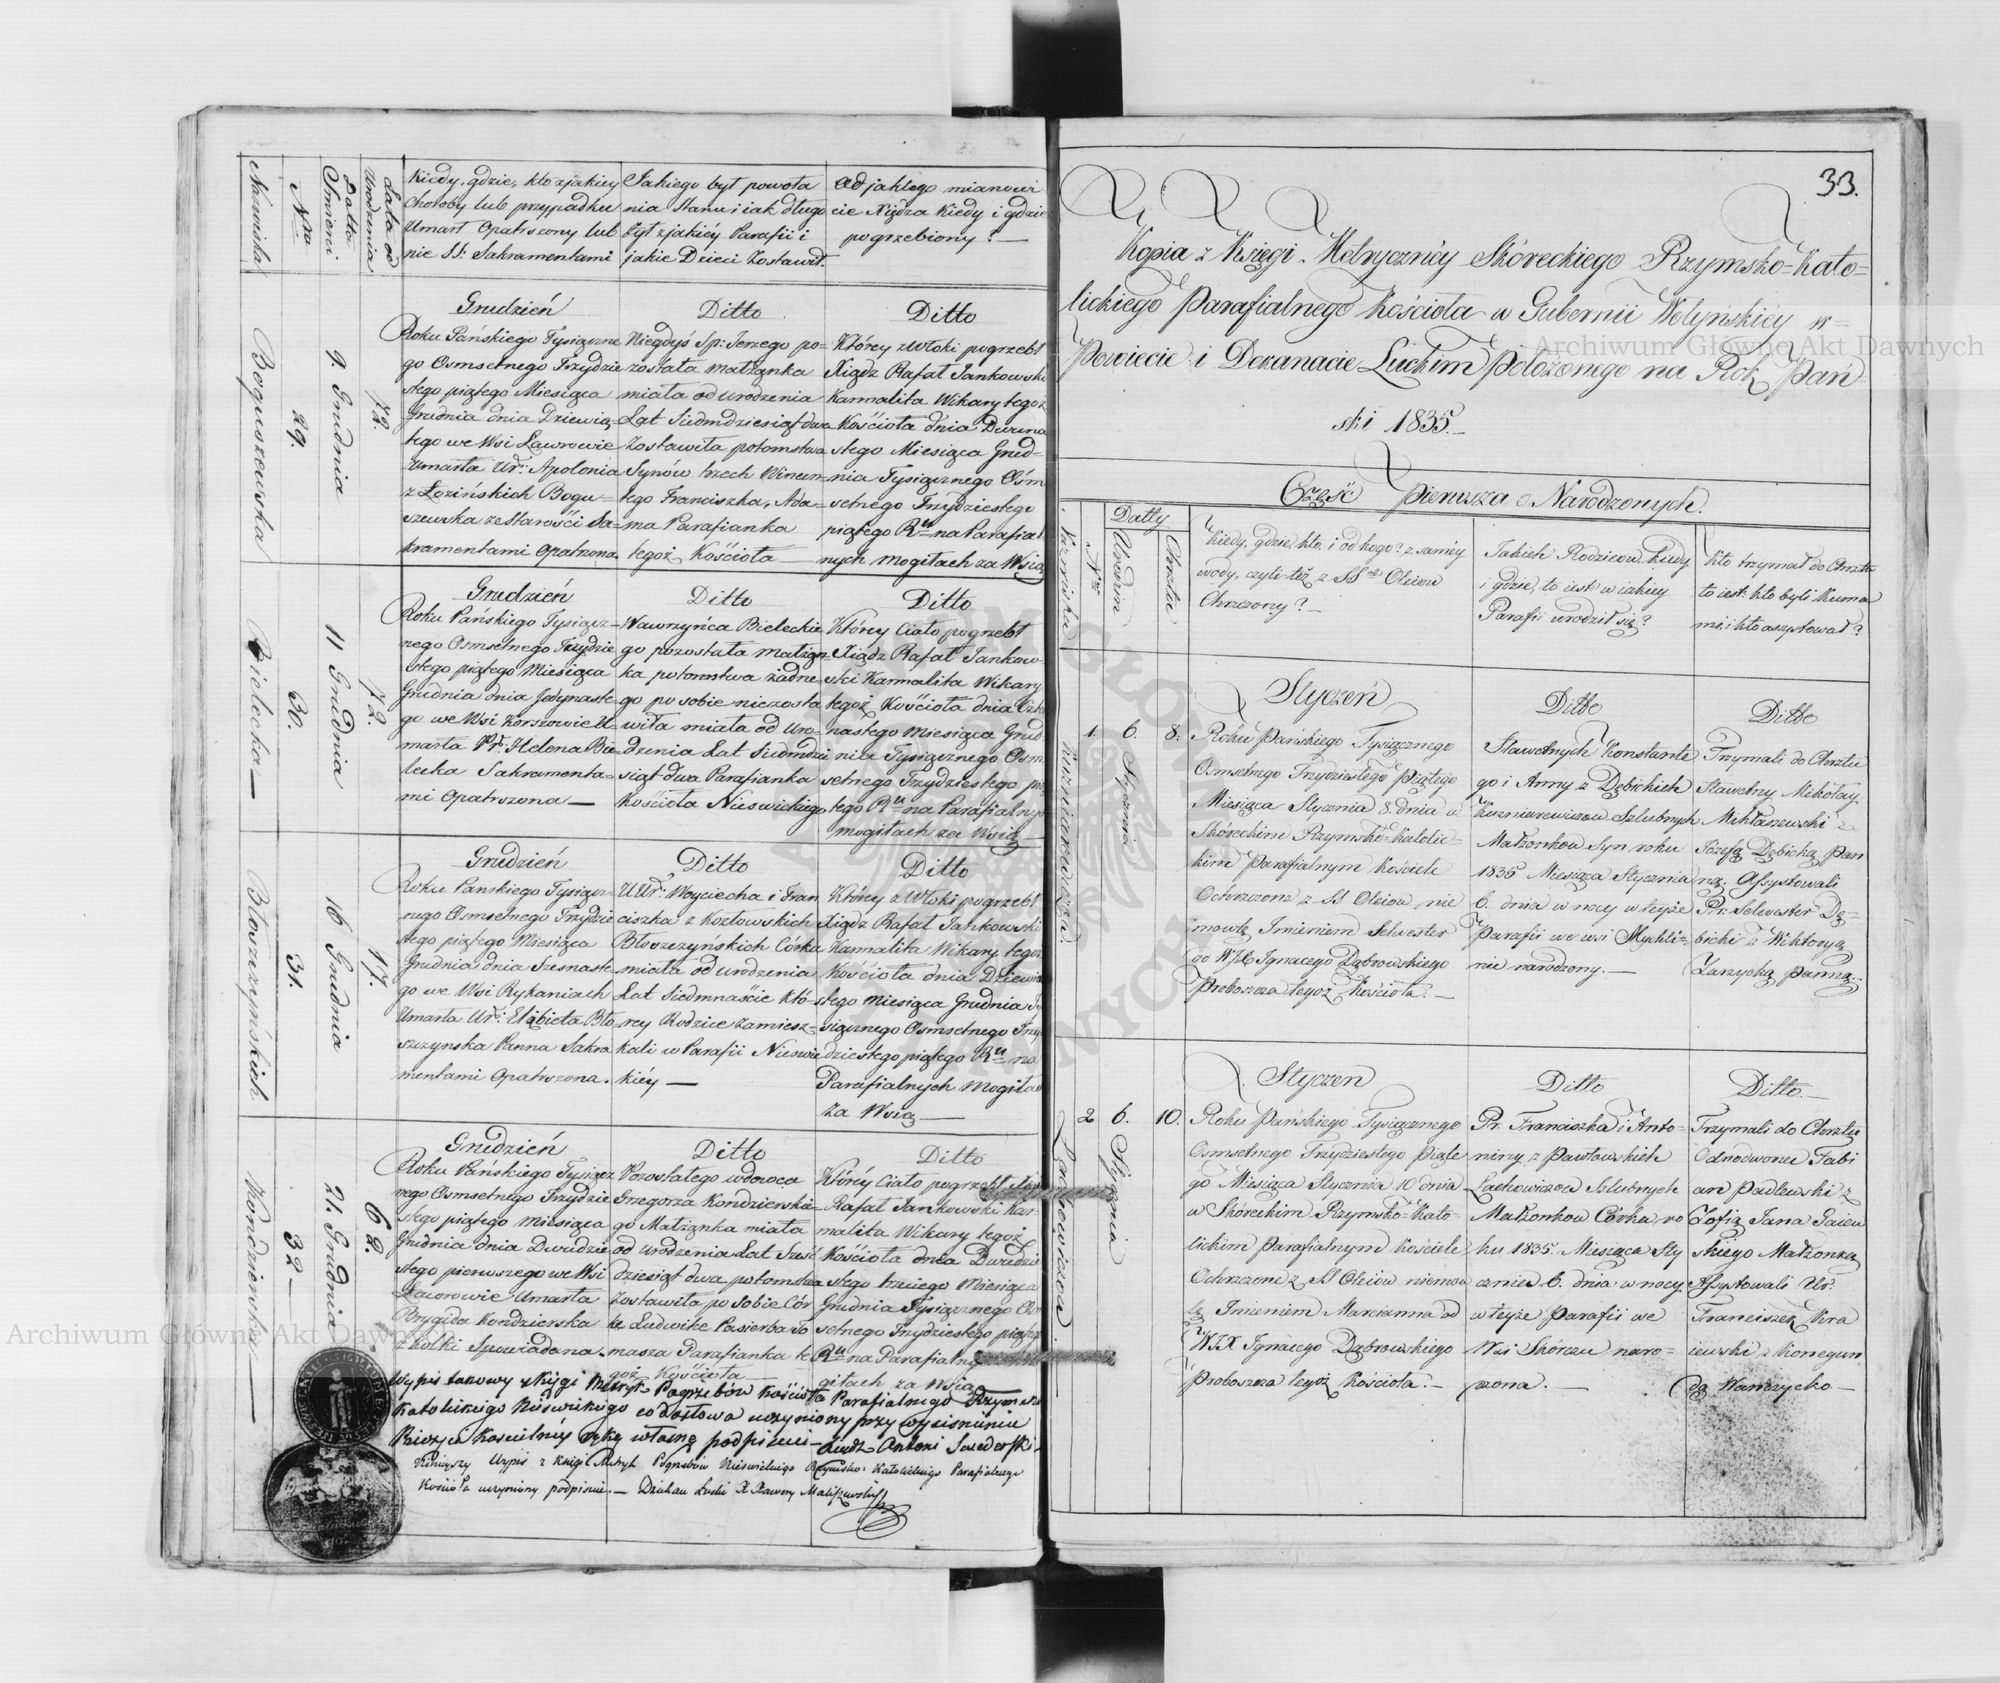 Nazwiska
Nro
Datto
Śmierci.
Lata od
Urodzenia
Kiedy, gdzie, kto z jakiey
Choroby lub przypadku
Umarł Opatrzony lub
nie SS: Sakramentami
Jakiego był powoła
nia Stanu i iak długo
żył z jakiéy Parafii i
jakie Dzieci zostawił.
Od jakiego mianowi
cie Xiędza Kiedy i gdzie
pogrzebiony? —
Boguszewska
29.
9. Grudnia
72.
Grudzień
Roku Pańskiego Tysiączne
go Osmsetnego Trzydzie
stego piątego Miesiąca
Grudnia dnia Dziewią
tego we Wsi Ławrowie
zmarła Ur: Apolonia
z Łozińskich Bogu-
szewska ze Starości Sa-
kramentami Opatrzona.
Ditto
Niegdyś Sp: Jerzego po-
została małżąnka
miała od urodzenia
Lat Siedmdziesiąt dwa
Zostawiła potomstwa
Synów trzech Wincen-
tego Franciszka, Ada-
ma Parafianka
tegoż Kościoła —
Ditto
Którey zwłoki pogrzebł
Xiądz Rafał Jankowski
Karmalita Wikary tegoż
Kościoła dnia Dwuna
stego Miesiąca Grud-
nia Tysiącznego Ośm
setnego Trzydziestego
piątego Ru na Parafial
nych mogiłach za Wsią
Bielecka —
30.
11 Grudnia
72.
Grudzień
Roku Pańskiego Tysiącz-
nego Osmsetnego Trzydzie
stego piątego Miesiąca
Grudnia dnia Jedynaste
go we Wsi Korszowie U
marła Pr: Helena Bie
lecka Sakramenta-
mi Opatrzona —
Ditto
Wawrzyńca Bieleckie
go pozostała małżąn-
ka potomstwa żadne
go po sobie niezosta
wiła miała od Uro-
dzenia Lat Siedmdzie
siąt dwa Parafianka
Kościoła Nieswickiego
Ditto
Którey Ciało pogrzebł
Xiądz Rafał Jankow-
ski Karmalita Wikary
tegoż Kościoła dnia Czter
nastego miesiąca Grud
nia Tysiącznego Osm
setnego Trzydziestego pią
tego Ru na Parafialnych
mogiłach za Wsią —
Błoszczyńskich
31.
16 Grudnia
17.
Grudzień
Roku Panskiego Tysiącz-
nego Osmsetnego Trzydzie
stego piątego Miesiąca
Grudnia dnia Szesnaste
go we Wsi Rykaniach
Umarła Ur: Elżbieta Bło-
szczynska Panna Sakra
mentami Opatrzona.
Ditto
UUr: Woyciecha i Fran
ciszka z Kozłowskich
Błoszczyńskich Córka
miała od urodzenia
Lat Siedmnaście Któ-
rey Rodzice zamiesz-
kali w Parafii Nieswie
kiéy —
Ditto
Którey zwłoki pogrzebł
Xiądz Rafał Jankowski
Karmalita Wikary tegoż
Kościoła dnia Dziewię
stego miesiąca Grudnia Ty
siącznego Osmsetnego Trzy
dziestego piątego Ru na
Parafialnych mogiłach
za Wsią —
Kondzierska —
32 —
21. Grudnia
62.
Grudzień
Roku Pańskiego Tysiącz
nego Osmsetnego Trzydzie
stego piątego Miesiąca
Grudnia dnia Dwudzie
stego pierwszego we Wsi
Ławrowie Umarła
Brygida Kondzierska
z Kolki Spowiadana.
Ditto
Pozostałego wdowca
Grzegorza Kondzierskie
go Małżąnka miała
od urodzenia Lat Sześć
dziesiąt dwa potomstwa
zostawiła po sobie Cór
kę Ludwike Pasierba To
masza Parafianka te
goż Kościoła —
Ditto
Którey Ciało pogrzebł Xiąd
Rafał Jankowski Kar-
malita Wikary tegoż
Kościoła dnia Dwudzie
stego trzeciego Miesiąca
Grudnia Tysiącznego Ośm
setnego Trzydziestego piątego
Ru na Parafialnych
giłach za Wsią
Wypis takowy z Księgi Metryk Pogrzebów Kościoła Parafialnego Rzymsko
Katolickiego Nieswickiego co dosłowa uczyniony przy wyciśnieniu
Pieczęci Kościelnéy ręką własną podpisuie — Xiądz Antoni
Ninieyszy Wypis z Księgi Metryk Pogrzebów Nieswickiego Rzymsko-Katolickiego Parafialnego
Kościoła uczyniony podpisuie. — Dziekan Łucki X Xawery Maliszewski
33.
Kopia z Księgi Metryczney Skóreckiego Rzymsko-Kato-
lickiego Parafialnego Kościoła w Gubernii Wołynskiey w-
Powiecie i Dekanacie Łuckim położonego na Rok Pań-
ski 1835. —
Część pierwsza o Narodzonych.
Nazwiska
Nro
Datty
Urodzin
Chrztu
Kiedy, gdzie, kto, i od kogo? z saméy
wody, czyli też z SStch Oleiow
Chrzczony? —
Jakich Rodzicow, kiedy
i gdzie, to iest w iakiey
Parafii urodził się?
Kto trzymał do Chrztu
to iest: kto byli Kuma
mi, i kto assystował?
Kuzniarewiczow.
1.
6. Stycznia
8.
Styczeń
Roku Pańskiego Tysiącznego
Osmsetnego Trzydziestego Piątego
Miesiąca Stycznia 8. dnia w
Skóreckim Rzymsko-Katolic-
kim Parafialnym Kościele
Ochrzczono z SS Oleiow nie
mowlę Imieniem Sylwester
go WJX Ignacego Dąbrowskiego
Proboszcza tegoż Kościoła. —
Ditto
Sławetnych Konstante
go i Anny z Dębickich
Kuzniarewiczow Szlubnych
Małżonkow Syn, roku
1835 Miesiąca Stycznia
6. dnia w nocy w teyże
Parafii we wsi Mychli-
nie narodzony. —
Ditto
Trzymali do Chrztu
Sławetny Mikołay
Mikłaszewski z
Józefą Dębicką Pan
ną. Assystowali
Pr: Selwester Dę-
bicki z Wiktoryą
Zarzycką Panną. —
Lachowiczow.
2
6. Stycznia
10.
Styczen
Roku Pańskiego Tysiącznego
Osmsetnego Trzydziestego Piąte
go Miesiąca Stycznia 10 dnia
w Skóreckim Rzymsko-Kato-
lickim Parafialnym Kościele
Ochrzczono z SS Oleiow niemow
lę Imieniem Marcianna od
WJX Ignacego Dąbrowskiego
Proboszcza tegoż Kościoła. —
Ditto
Pr: Franciszka i Anto-
niny z Pawłowskich
Lachowiczow Szlubnych
Małżonkow Córka ro
ku 1835. Miesiąca Sty
cznia 6. dnia w nocy
w teyże Parafii we
Wsi Skórczu naro-
dzona. —
Ditto. —
Trzymali do Chrztu
Odnodworzec Fabi
an Padlewski z
Zofią Jana
skiego Małżonką
Assystowali Ur:
Franciszek Kra
iewski z Konegun
dą —
Archiwum Główne Akt Dawnych
Archiwum Główne Akt Dawnych